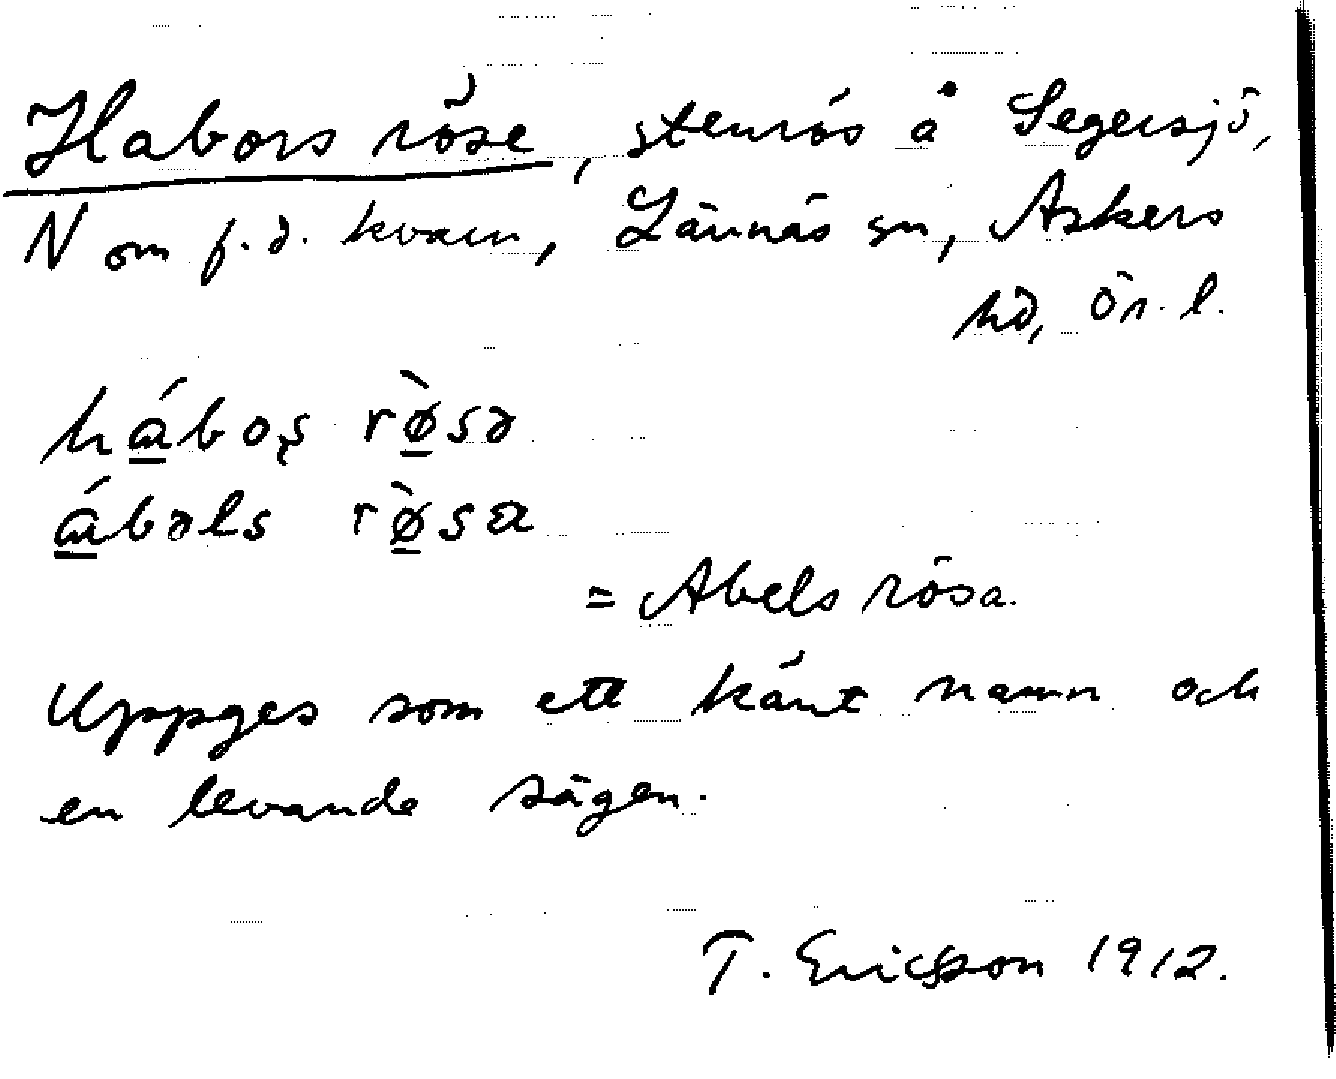 Habors röse, stenrös å Segersjö,
N om f.d. kvarn, Lännäs sn, Askers
hd, Ör. l.
hábo̢s rø̀sə
ábəls rø̀sa
= Abels rösa.
Uppges som ett känt namn och
en levande sägen.
T. Ericsson 1912.